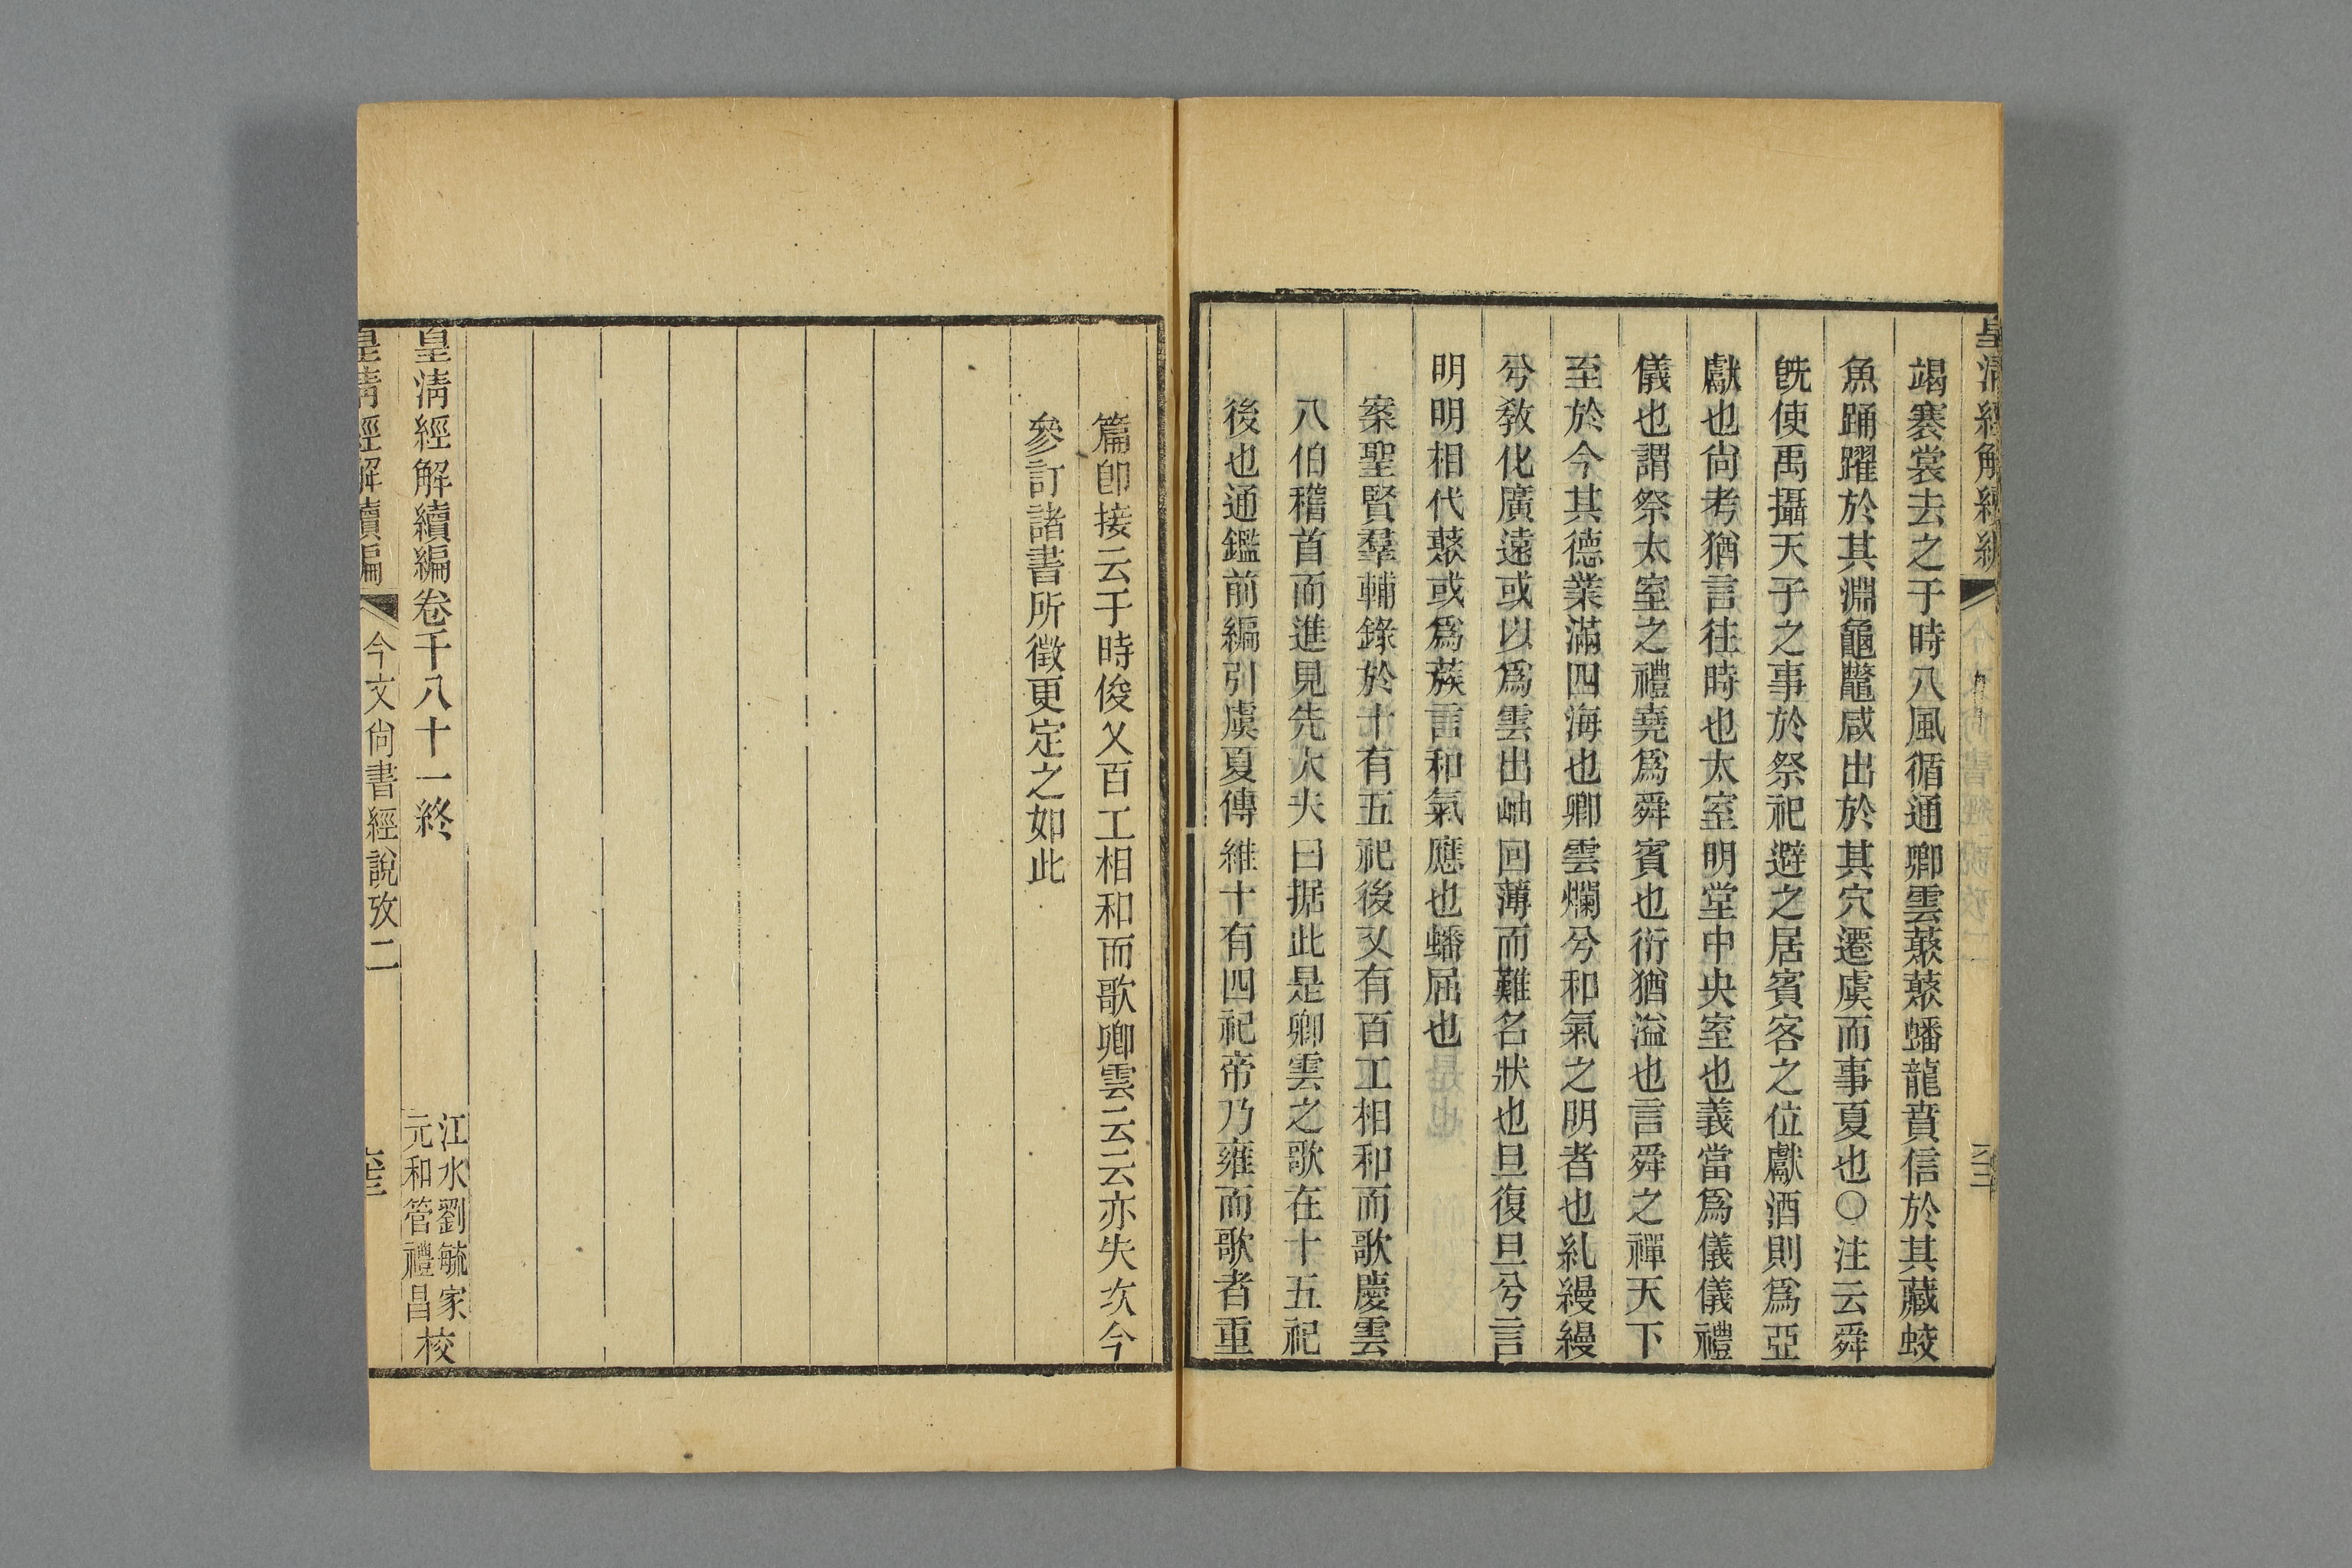 皇清經解續編
竭褰裳去之于時八風循通卿雲藂藂蟠龍賁信於其藏蛟
魚踊躍於其淵龜鼈咸出於其穴遷虞而事夏也○注云舜
旣使禹攝天子之事於祭祀避之居賓客之位獻酒則爲亞
獻也尙考猶言往時也太室明堂中央室也義當爲儀儀禮
儀也謂祭太室之禮堯爲舜賓也衍猶溢也言舜之禪天下
至於今其德業滿四海也卿雲爛兮和氣之明者也糺縵縵
兮敎化廣遠或以爲雲出岫回薄而難名狀也旦復旦兮言
明明相代藂或爲蔟言和氣應也蟠屈也
案聖賢羣輔錄於十有五祀後又有百工相和而歌慶雲
八伯稽首而進見先大夫曰据此是卿雲之歌在十五祀
後也通鑑前編引虞夏傳維十有四祀帝乃雍而歌者重
篇卽接云于時俊乂百工相和而歌卿雲云云亦失次今
參訂諸書所徵更定之如此
皇淸經解續編卷千八十一終
江水劉毓家
元和管禮昌校
皇清經解續編
今文尙書經說攷二